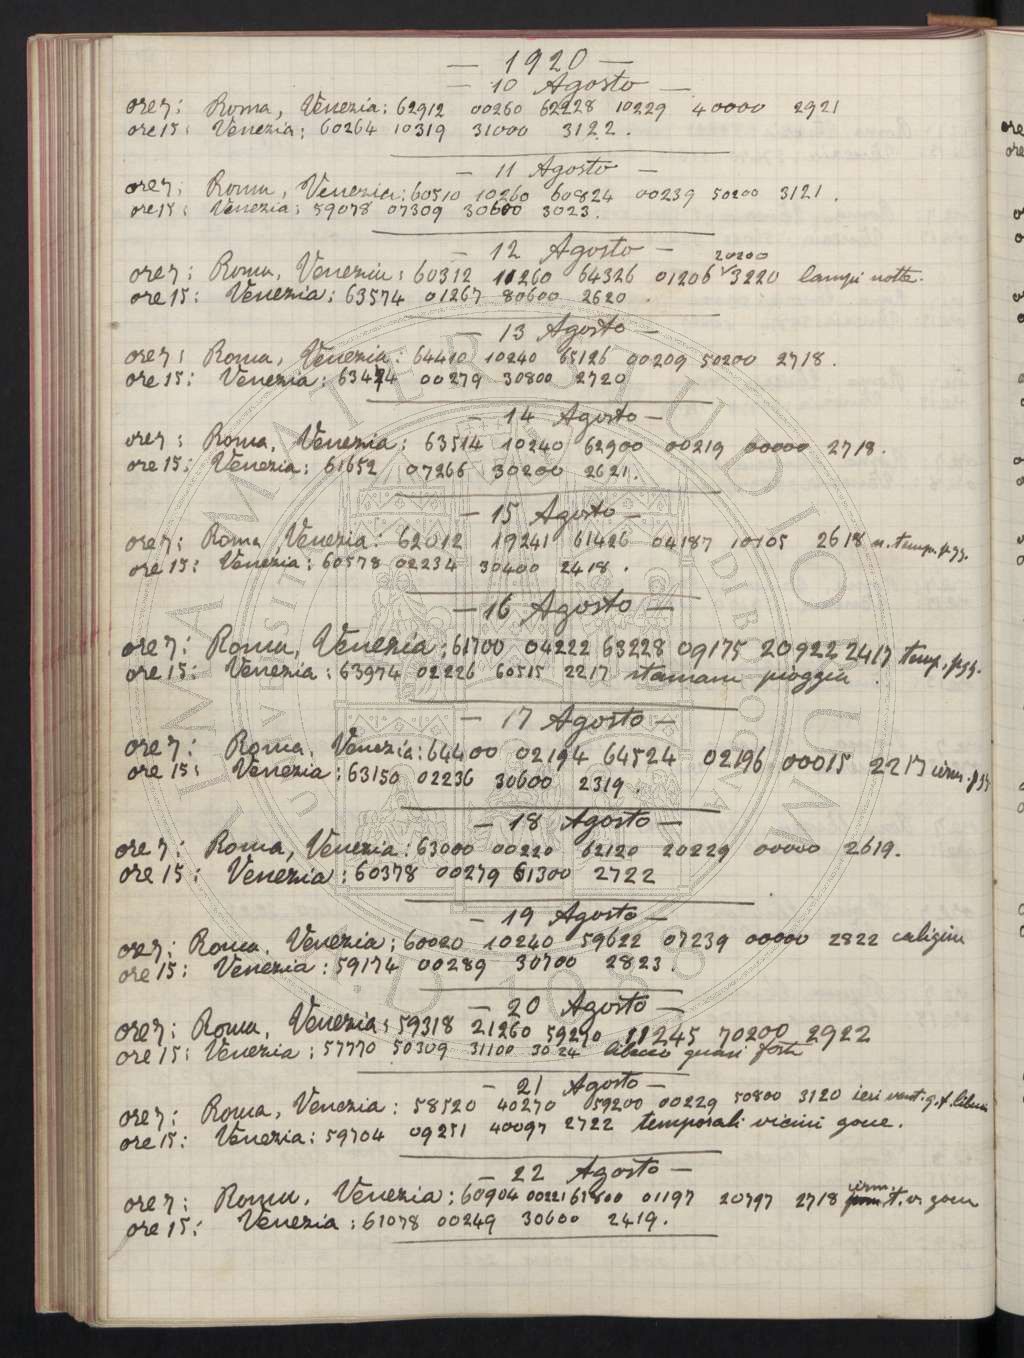 — 1920 —
— 10 Agosto —
ore 7: Roma, Venezia: 62912 00260 62228 10229 40000 2921
ore 15: Venezia: 60264 10319 31000 3122.
— 11 Agosto —
ore 7: Roma, Venezia: 60510 10260 60824 00239 50200 3121.
ore 15: Venezia: 59078 07309 30600 3023.
— 12 Agosto —
20200
ore 7: Roma, Venezia: 60312 11260 64326 01206 3220 lampi notte.
ore 15: Venezia: 63574 01267 80600 2620.
— 13 Agosto —
ore 7: Roma, Venezia: 64410 10240 65126 00209 50200 2718.
ore 15: Venezia: 63474 00279 30800 2720
— 14 Agosto —
ore 7: Roma, Venezia: 63514 10240 62900 00219 00000 2718.
ore 15: Venezia: 61652 07266 30200 2621.
— 15 Agosto —
ore 7: Roma, Venezia: 62012 19241 61426 04187 10105 2618 n. temp. pgg.
ore 15: Venezia: 60578 02234 30400 2418.
— 16 Agosto —
ore 7: Roma, Venezia: 61700 04222 63228 09175 20922 2417 temp. pgg.
ore 15: Venezia: 63974 02226 60515 2217 stamani pioggia.
— 17 Agosto —
ore 7: Roma, Venezia: 64400 02194 64524 02196 00015 2217
ore 15: Venezia: 63150 02236 30600 2319.
— 18 Agosto —
ore 7: Roma, Venezia: 63000 00220 62120 20229 00000 2619.
ore 15: Venezia: 60378 00279 61300 2722
— 19 Agosto —
ore 7: Roma, Venezia: 60020 10240 59622 07239 00000 2822 caligine
ore 15: Venezia: 59174 00289 30700 2823.
— 20 Agosto —
ore 7: Roma, Venezia: 59318 21260 59270 11245 70200 2922
ore 15: Venezia: 57770 50309 31100 3024 libeccio quasi forte
— 21 Agosto —
ore 7: Roma, Venezia: 58520 40270 59200 00229 50800 3120 ieri vent. q. f. libecc
ore 15: Venezia: 59704 09251 40097 2722 temporali vicini goccie.
— 22 Agosto —
ore 7: Roma, Venezia: 60904 00221 61800 01197 20797 2718
ore 15: Venezia: 61078 00249 30600 2419.